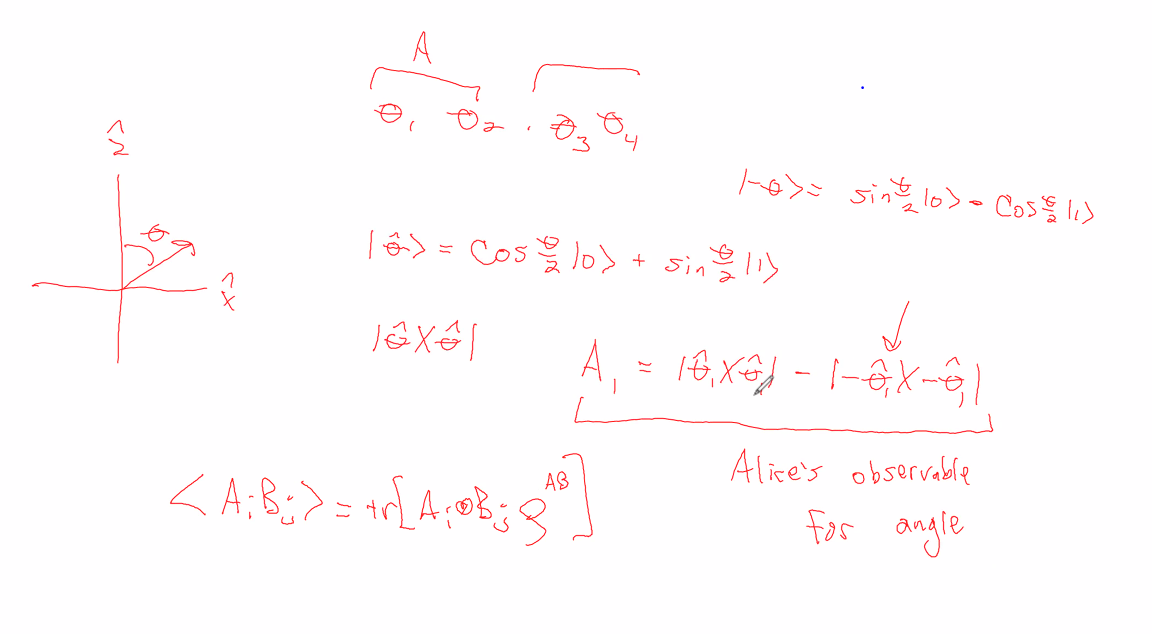 A
θ₁ θ₂ . θ₃ θ₄
ẑ
|-θ> = sin θ/2 |0> - cos θ/2 |1>
θ
|θ̂> = Cos θ/2 |0> + sin θ/2 |1>
x̂
|θ̂><θ̂|
A₁ = |θ̂₁><θ̂₁| - |-θ̂₁><-θ̂₁|
Alice's observable
for angle
<AᵢBⱼ> = tr[Aᵢ⊗Bⱼ ρ^AB]